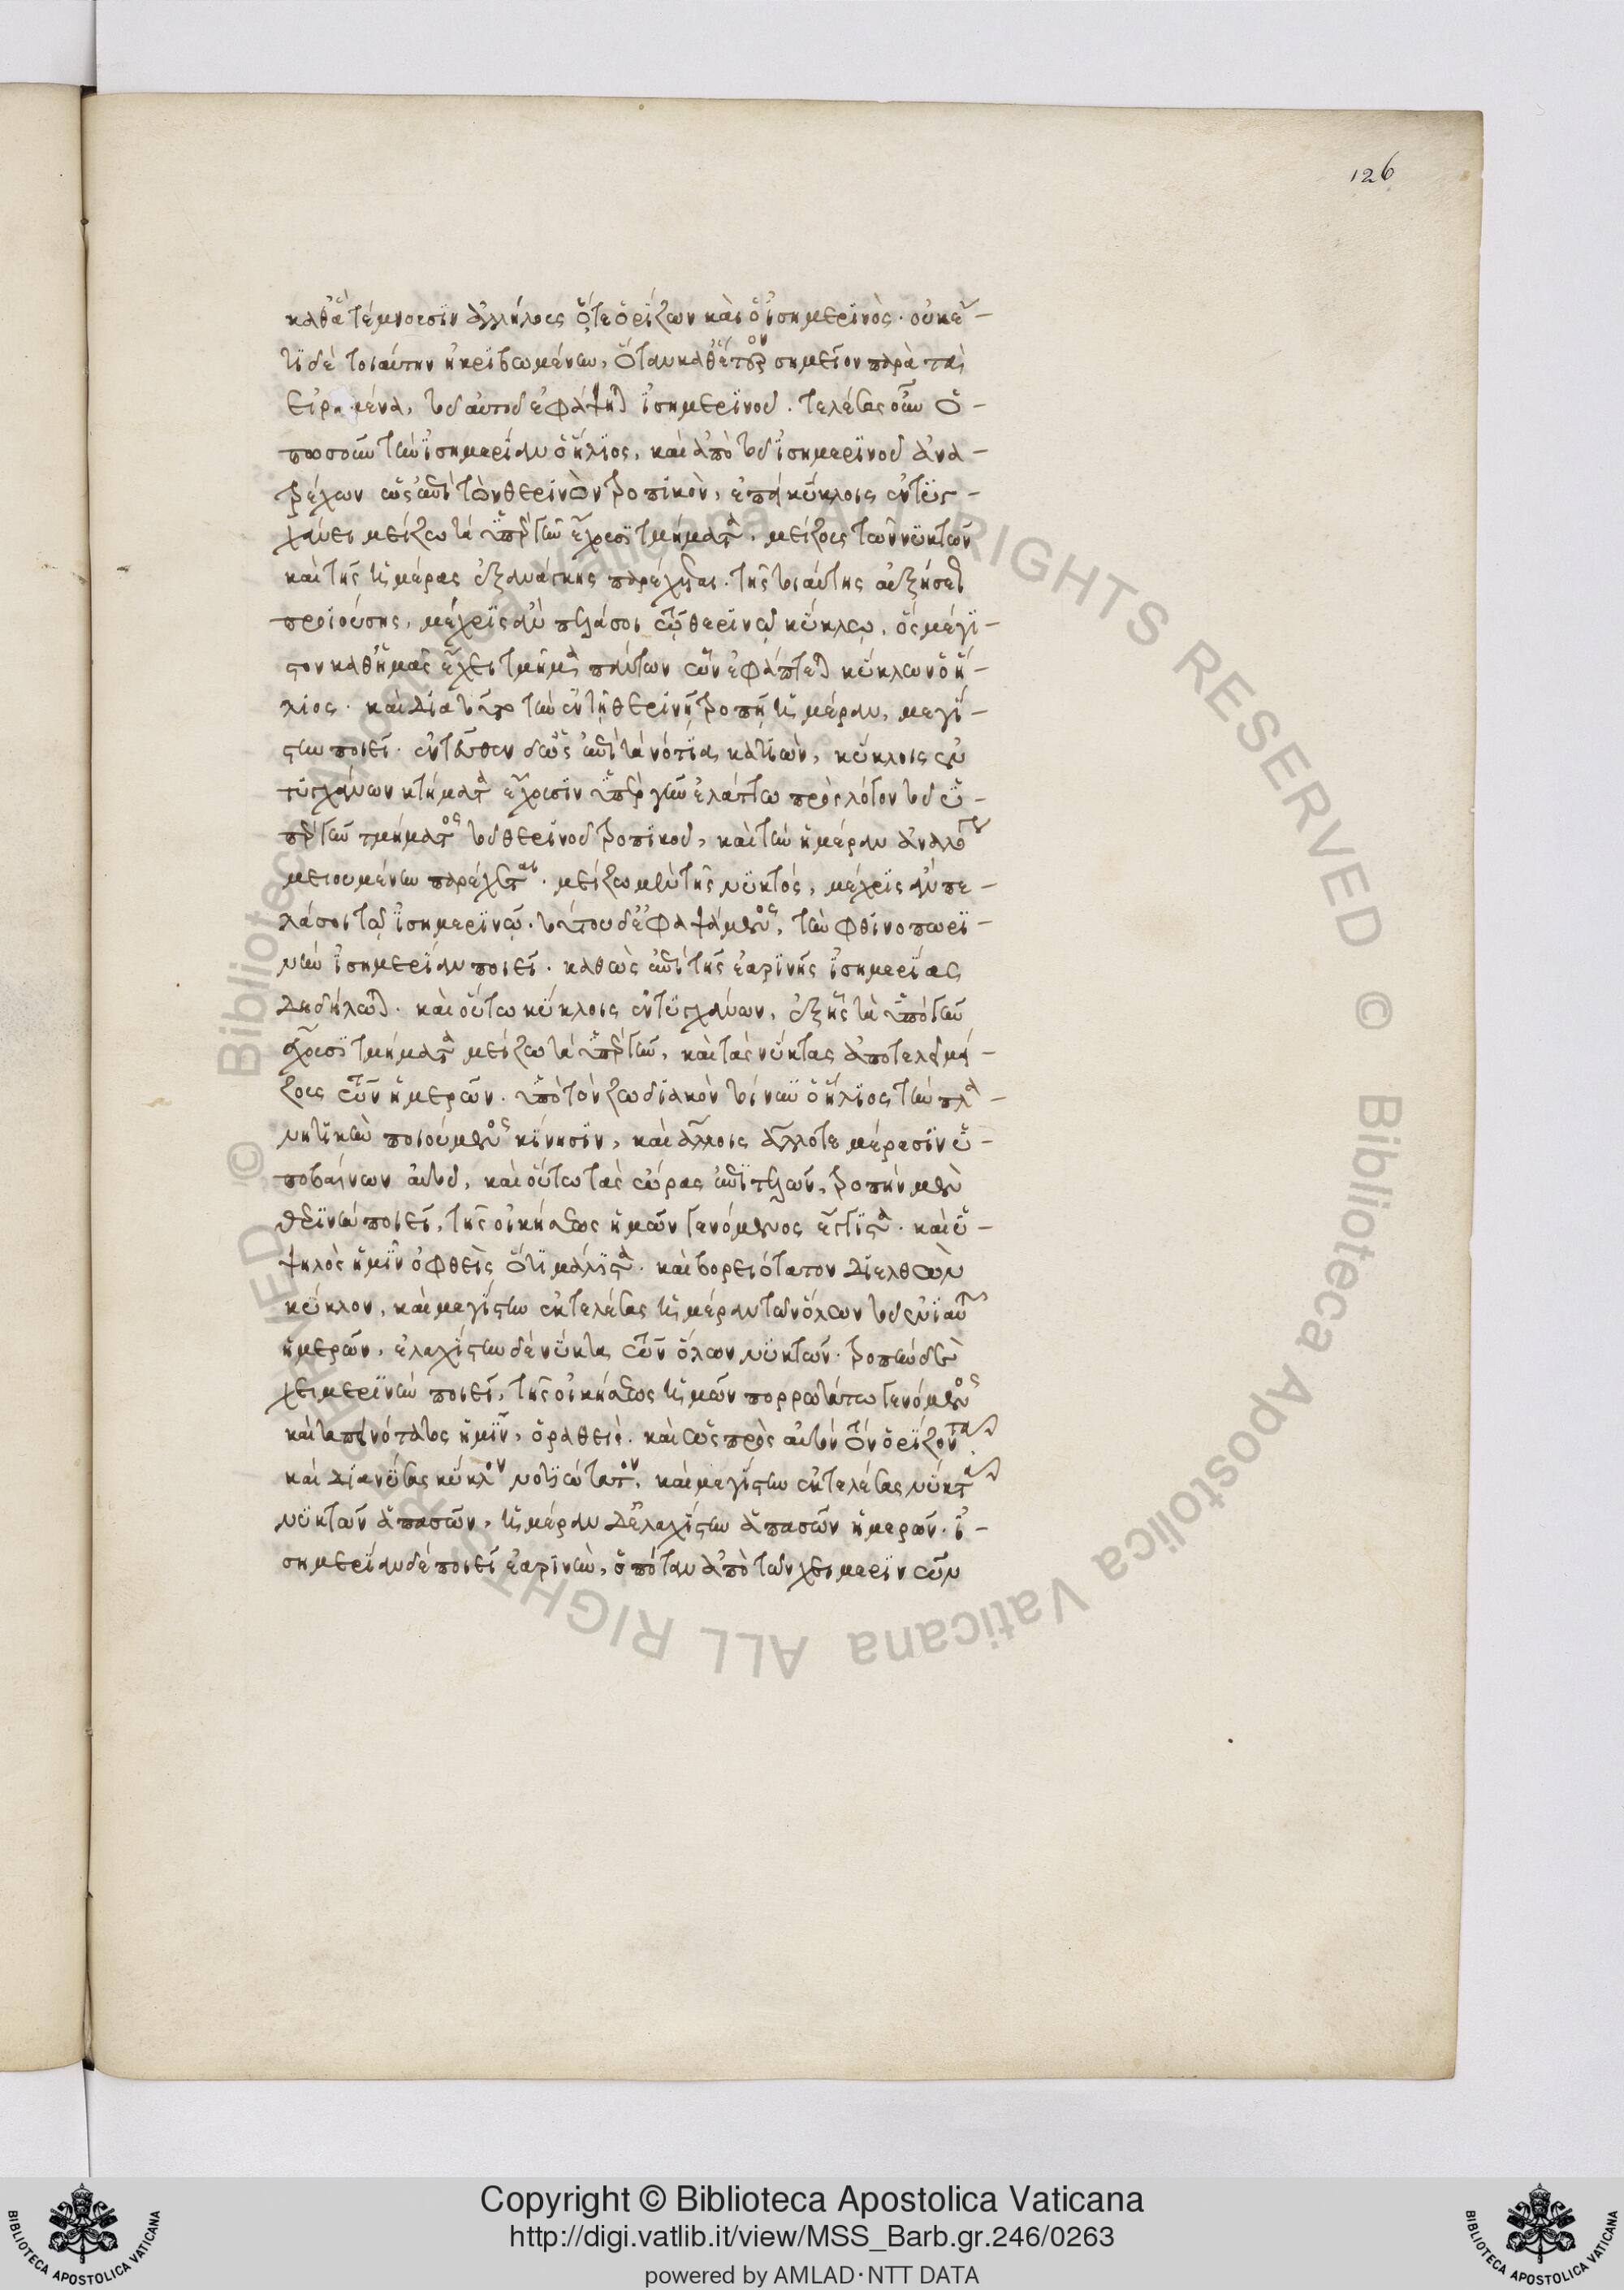 126
καθὰ τέμνουσιν ἀλλήλους ὅ τε ὁρίζων καὶ ὁ ἰσημερινός. οὐκέ-
τι δὲ τοιαύτην ἠκριβωμένην, ὅταν καθ' ἕτερον σημεῖον παρὰ τὰ
εἰρημένα, τοῦ αὐτοῦ ἐφάψηται ἰσημερινοῦ. τελέσας οὖν ὁ-
πωσοῦν τὴν ἰσημερίαν ὁ ἥλιος, καὶ ἀπὸ τοῦ ἰσημερινοῦ ἀνα-
τρέχων ὡς ἐπὶ τὸν θερινὸν τροπικὸν, ἐπεὶ κύκλοις ἐντυγ-
χάνει μείζω τὰ ὑπὲρ γῆν ἔχουσι τμήματα, μείζους τῶν νυκτῶν
καὶ τὰς ἡμέρας ἐξανάγκης παρέχεται. τῆς τοιαύτης αὐξήσεως
προϊούσης, μέχρις ἂν πελάσοι τῷ θερινῷ κύκλῳ, ὃς μέγι-
στον καθ' ἡμᾶς ἔχει τμῆμα πάντων ὧν ἐφάπτεται κύκλων ὁ ἥ-
λιος. καὶ διὰ τοῦτο τὴν ἐν τῇ θερινῇ τροπῇ ἡμέραν, μεγί-
στην ποιεῖ. ἐντεῦθεν δ' ὡς ἐπὶ τὰ νότια κατιὼν, κύκλοις ἐν
τυγχάνων κτήματα ἔχουσιν ὑπὲρ γῆν ἐλάττω πρὸς λόγον τοῦ ὑ-
πὲρ γῆν τμήματος τοῦ θερινοῦ τροπικοῦ, καὶ τὴν ἡμέραν ἀναλόγως
μειουμένην παρέχεται. μείζω μὲν τῆς νυκτός, μέχρις ἂν πε-
λάσοι τῷ ἰσημερινῷ. τούτου δ' ἐφαψάμενος, τὴν φθινοπωρι-
νὴν ἰσημερίαν ποιεῖ. καθὼς ἐπὶ τῆς ἐαρινῆς ἰσημερίας
δεδήλωται. καὶ οὕτω κύκλοις ἐντυγχάνων, ἑξῆς τὰ ὑπὸ γῆν
ἔχουσι τμήματα μείζω τὰ ὑπὲρ γῆν, καὶ τὰς νύκτας ἀποτελεῖ μεί-
ζους τῶν ἡμερῶν. ὑπὸ τὸν ζωδιακὸν τοίνυν ὁ ἥλιος τὴν πλα-
νητικὴν ποιούμενος κίνησιν, καὶ ἄλλοις ἄλλοτε μέρεσιν ὑ-
ποβαίνων αὐτοῦ, καὶ οὕτω τὰς ὥρας ἐπιτελῶν, τροπὴν μὲν
θερινὴν ποιεῖ, τῆς οἰκήσεως ἡμῶν γενόμενος ἔγγιστα. καὶ ὑ-
ψηλὸς ἡμῖν ὀφθεὶς ὅτι μάλιστα. καὶ βορειότατον διελθὼν
κύκλον, καὶ μεγίστην ἐκτελέσας ἡμέραν τῶν ὅλων τοῦ ἐνιαυτοῦ
ἡμερῶν, ἐλαχίστην δὲ νύκτα τῶν ὅλων νυκτῶν. τροπὴν δὲ
χειμερινὴν ποιεῖ, τῆς οἰκήσεως ἡμῶν πορρωτάτω γενόμενος
καὶ ταπεινότατος ἡμῖν, ὁραθείς. καὶ ὡς πρὸς αὐτὸν τὸν ὁρίζοντα
καὶ διανύσας κύκλον νοτιώτατον. καὶ μεγίστην ἐκτελέσας νύκτα
νυκτῶν ἁπασῶν, ἡμέραν δ' ἐλαχίστην ἁπασῶν ἡμερῶν. ἰ-
σημερίαν δὲ ποιεῖ ἐαρινὴν, ὁπόταν ἀπὸ τῶν χειμερινῶν
Copyright © Biblioteca Apostolica Vaticana
http://digi.vatlib.it/view/MSS_Barb.gr.246/0263
powered by AMLAD·NTT DATA